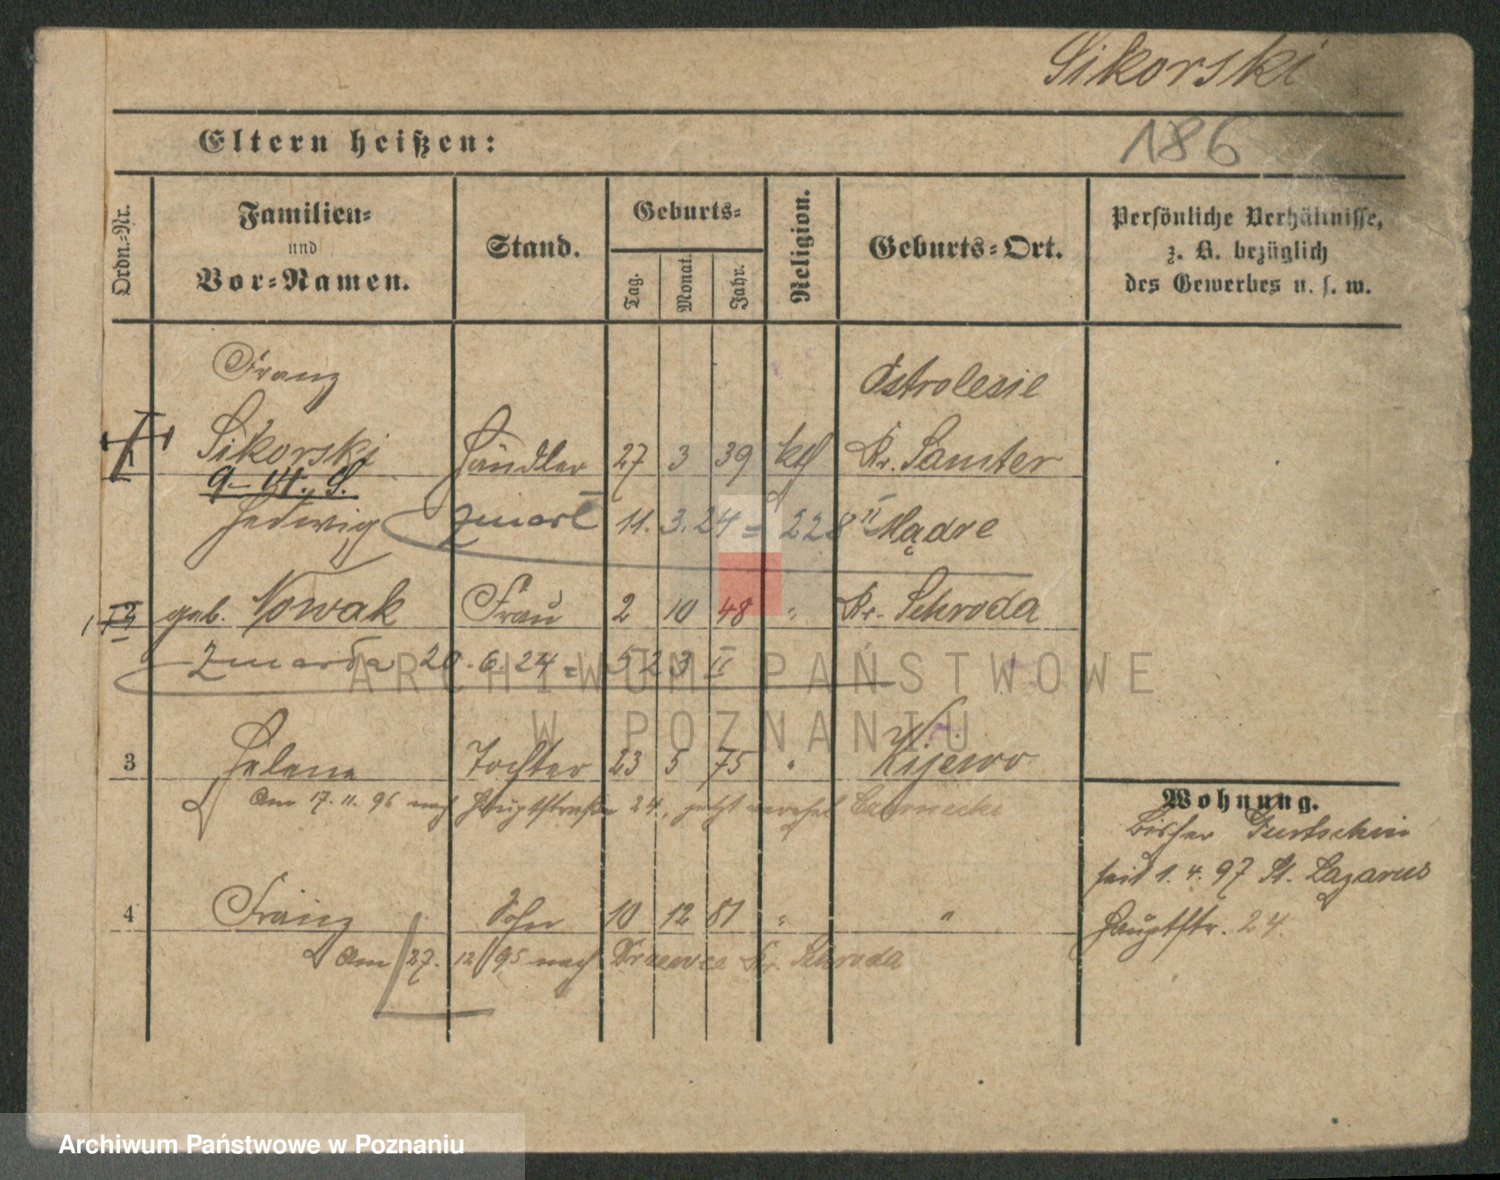 Sikorski
Eltern heißen:
186
Ordn.-Nr.
Familien- und Vor-Namen.
Stand.
Geburts-
Tag.
Monat.
Jahr.
Religion.
Geburts-Ort.
Persönliche Verhältnisse, z. B. bezüglich des Gewerbes u. s. w.
Franz Ostrolesie
Sikorski Händler 27 3 39 kth Kr. Samter
Hedwig zmarł 11. 3. 24 = 228 II Mądre
geb. Nowak Frau 2 10 48 " Kr. Schroda
zmarła 20. 6. 24 = 523 II
3 Helene Tochter 23 5 75 " Kijewo
Am 17. 11. 96 nach Hauptstraße 24, jetzt Czarnecki
4 Franz Sohn 10 12 81 " "
Am 27. 12 95 nach Kr. Schroda
Wohnung.
bisher Gurtschin
seit 1. 4. 97 St. Lazarus
Hauptstr. 24
ARCHIWUM PAŃSTWOWE
W POZNANIU
Archiwum Państwowe w Poznaniu